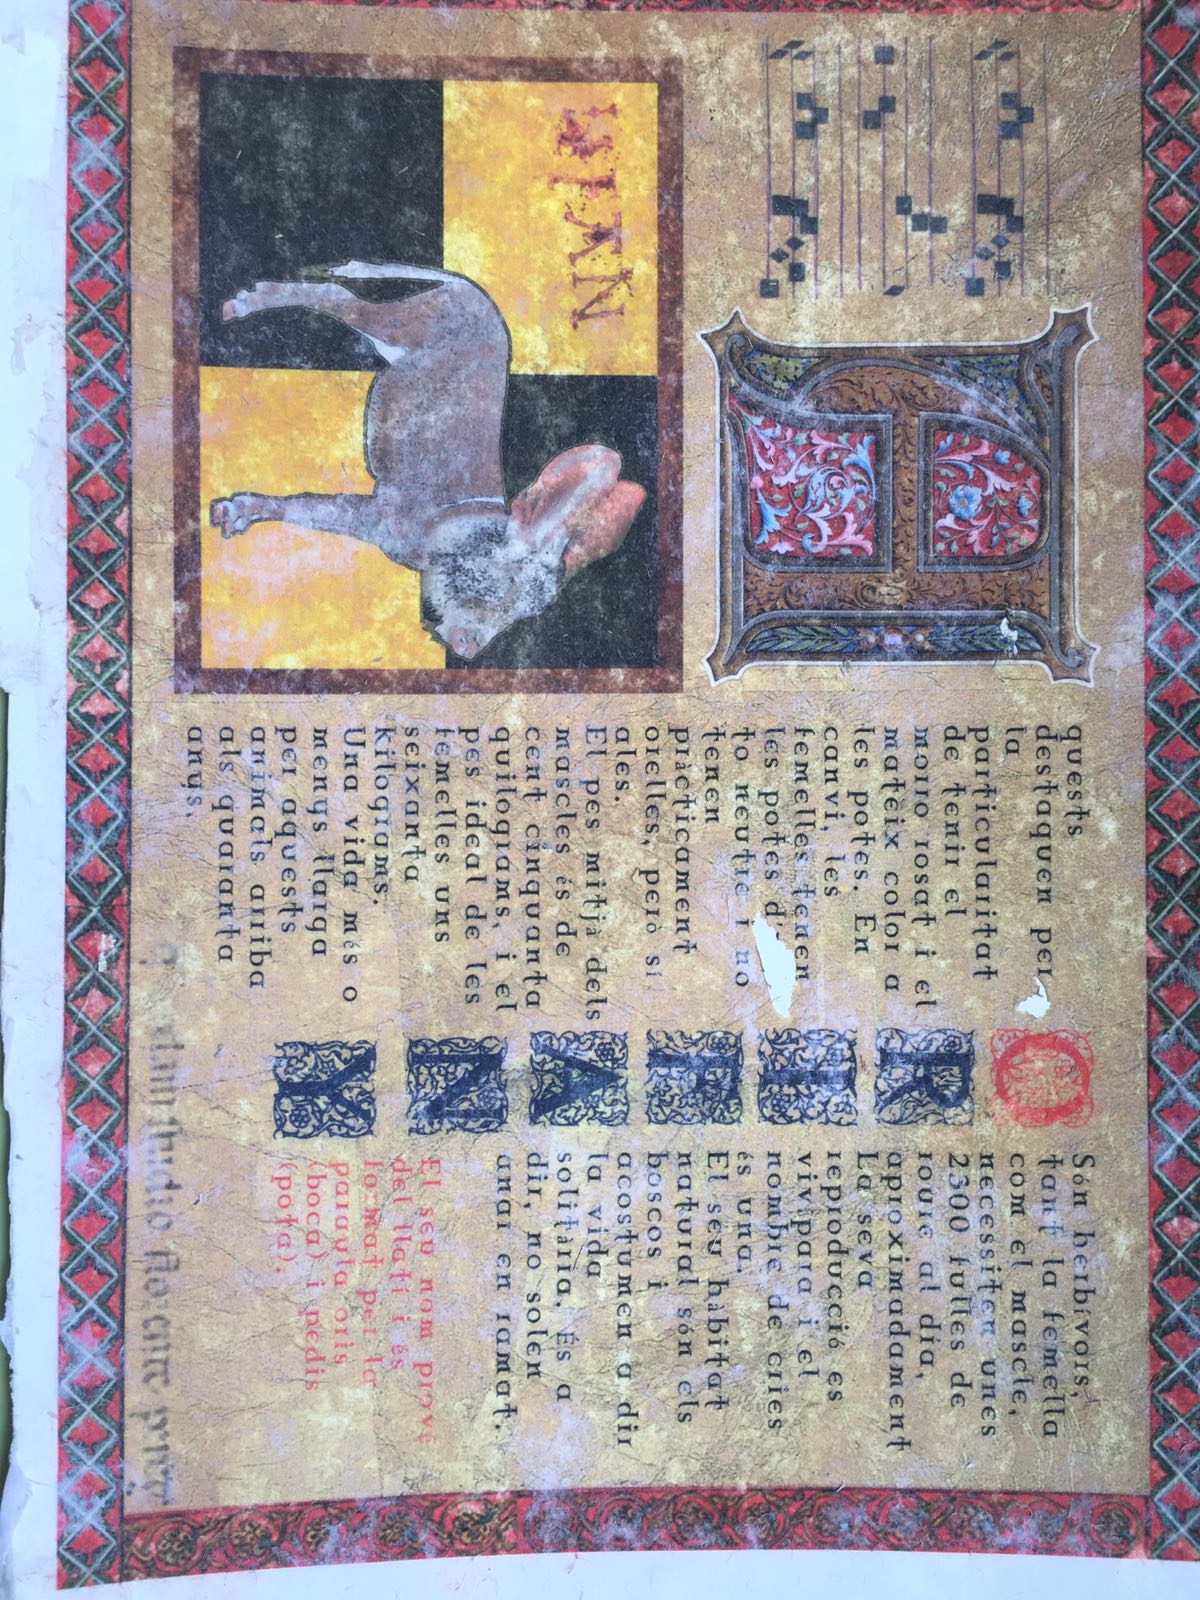 A
quests
destaquen per
la
particularitat
de tenir el
morro rosat i el
mateix color a
les potes. En
canvi, les
femelles tenen
les potes d'
to neutre i no
tenen
pràcticament
orelles, però sí
ales.
El pes mitjà dels
mascles és de
cent cinquanta
quilograms, i el
pes ideal de les
femelles uns
seixanta
kilograms.
Una vida més o
menys llarga
per aquests
animals arriba
als quaranta
anys.
O
R
A
N
X
Són herbívors,
tant la femella
com el mascle,
necessiten unes
2300 fulles de
roure al dia,
aproximadament
La seva
reproducció es
vivípara i el
nombre de cries
és una.
El seu hàbitat
natural són els
boscos i
acostumen a dir
la vida
solitària. És a
dir, no solen
anar en ramat.
El seu nom prové
del llatí i és
format per la
paraula oris
(boca) i pedis
(pota).